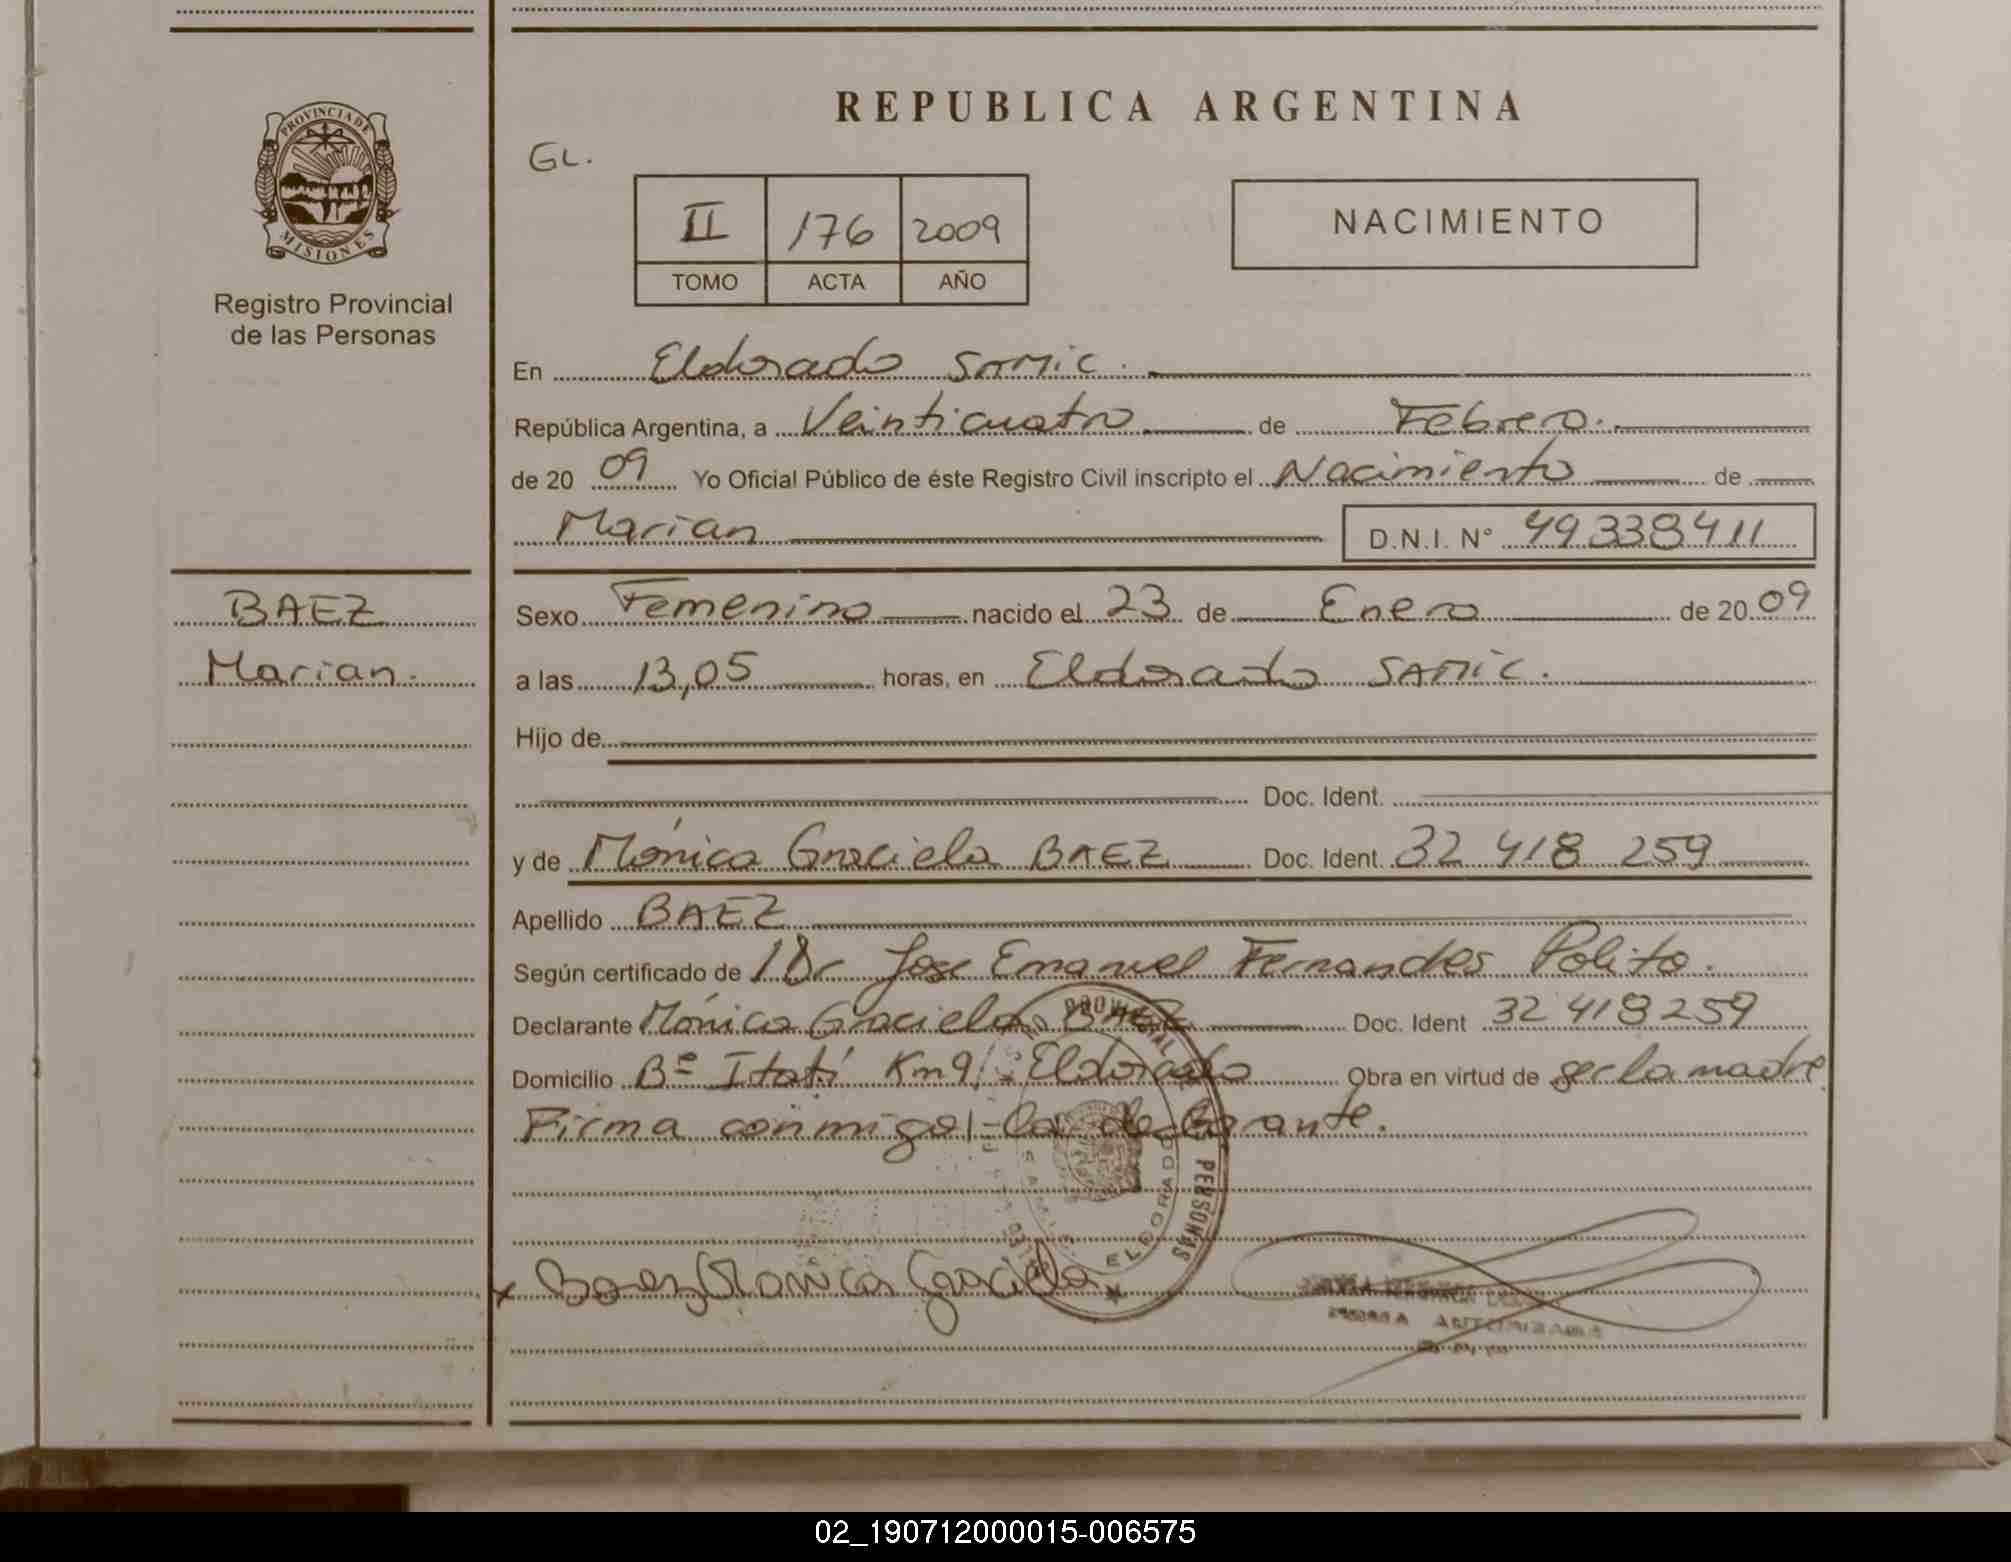 REPUBLICA ARGENTINA
PROVINCIA DE MISIONES
GL.
II 176 2009
TOMO ACTA AÑO
NACIMIENTO
Registro Provincial
de las Personas
En Eldorado SAMIC.
República Argentina, a Veinticuatro de Febrero.
de 2009 Yo Oficial Público de éste Registro Civil inscripto el Nacimiento de
Marian D.N.I. N° 49338411
BAEZ
Marian.
Sexo Femenino nacido el 23 de Enero de 2009
a las 13,05 horas, en Eldorado SAMIC.
Hijo de
Doc. Ident.
y de Mónica Graciela BAEZ Doc. Ident. 32 418 259
Apellido BAEZ
Según certificado de Dr Jose Emanuel Fernandes Polito.
Declarante Mónica Graciela BAEZ Doc. Ident 32 418259
Domicilio Bº Itatí Km9 Eldorado Obra en virtud de ser la madre
Firma conmigo la declarante.
PROVINCIAL PERSONAS
ELDORADO
x Baez Monica Graciela
02_190712000015-006575